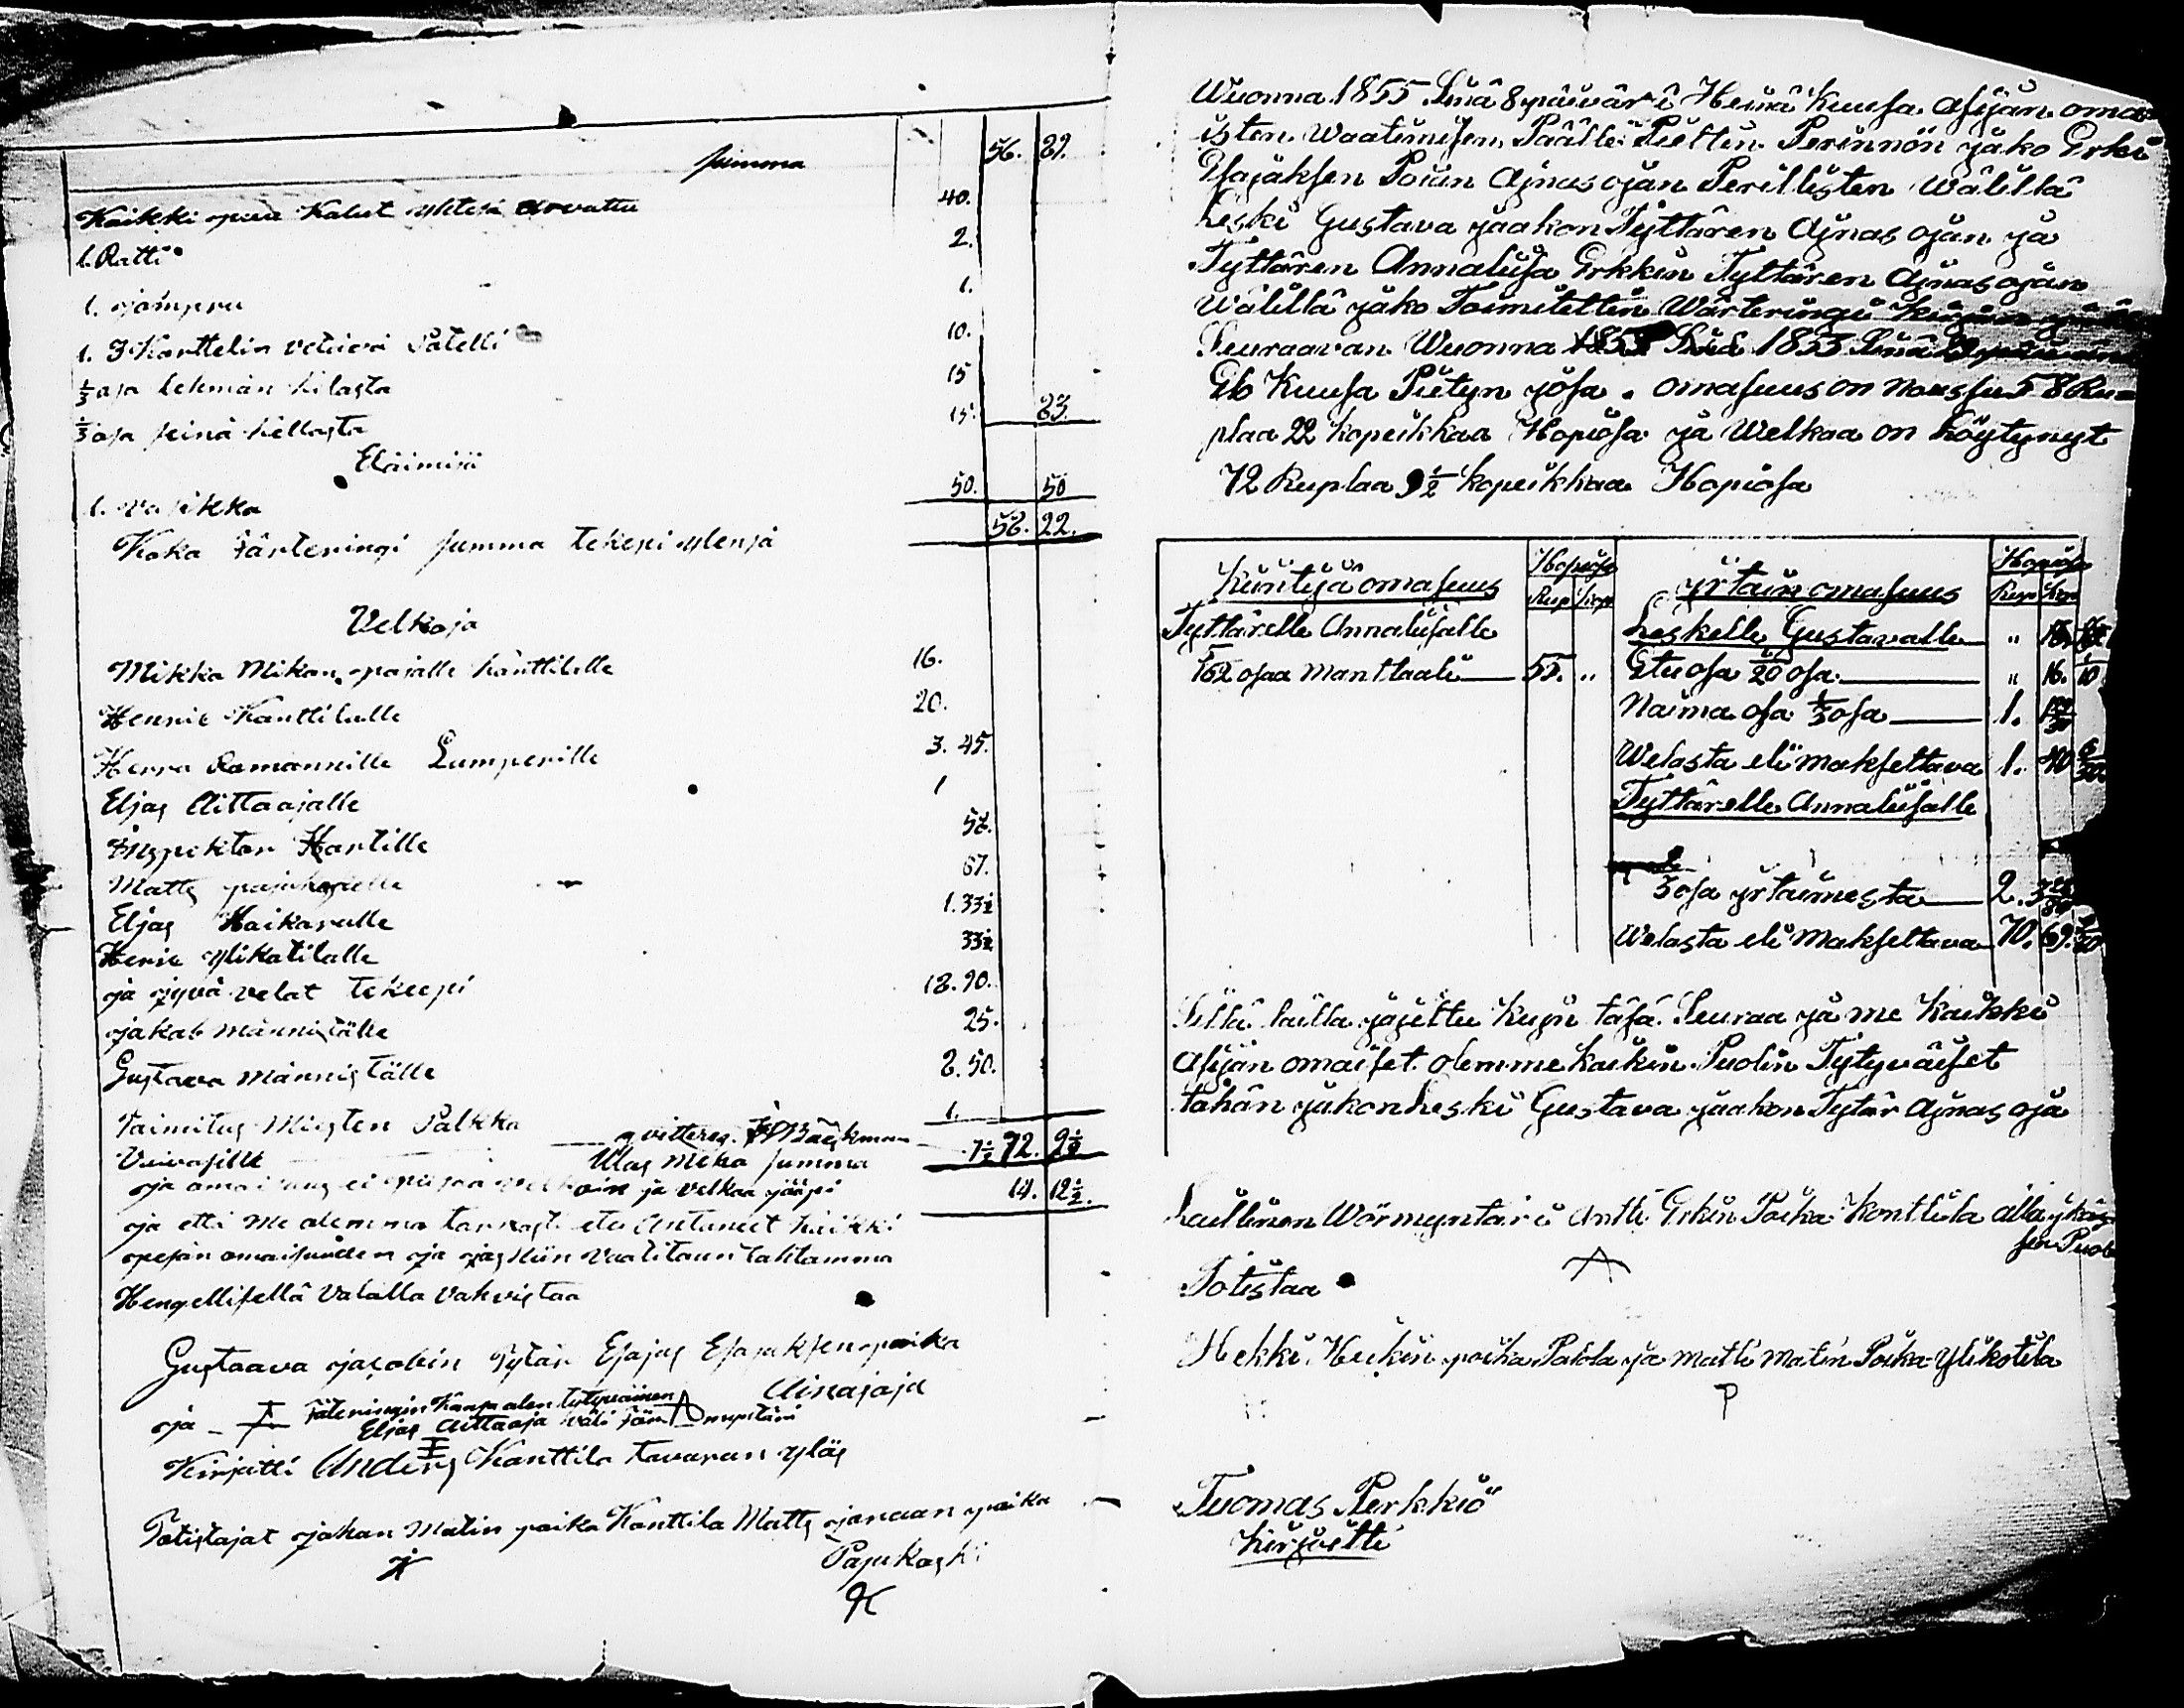 Summa 56. 89.
Kaikki puu Kalut yhtesä arvattu 40.
1. Ratti 2.
1. sjämpru 1.
1. 3 Kanttelin vetävä Patelli 10.
1/3 asa Lehmän kilasta 15
1/3 asa seinä kellasta 15. 83.
Eläimisä
1. vasikka 50. 50
Koko Färteringi summa tekepi ylensä 58. 22.
Velkoja
Mikka Mikan pajalle känttilalle 16.
Hennie Kanttilalle 20.
Herra Ramannille Lumperille 3. 45.
Eljas Aittaajalle 1
Inspehtor Hartille 58.
Matts pajukoselle 67.
Eljas Haikaralle 1. 33½
Henrie ylikatilalle 33½
ja jyvä velat tekeepi 18. 90.
jakab männiställe 25.
Gustava männiställe 2. 50.
Taimitus Miesten Palkka 1.
Vaivasille qvitteras. Bäckman 7½ 72. 9½
Ulas Mika summa
ja omaisuus ei velkain ja velkaa jääpi 14. 12½.
ja että me alemma tarkasti etu Antaneet kaikki
pesän omaisuuden ja jas niin vaatitaan tahtamma
Hengellisellä Valalla vahvistaa
Gustaava jacobin Tytär Esajas Esajaksen poika
Ainajaja
ja Fäteringin Känsa alen tytyväinen
Eljas Aittaaja
Kirjatti Anders Kanttila tavaran yläs
Tatistajat jahan Matin paika Kanttila Matts janaan paika
Pajukaski
Wuonna 1855 Sinä 8 päivänä Heinä Kuusa asijan oma
isten Waatimisen Päälle Piettin Perinnön jako Erki
Esajaksen Poian Ajnas ojan Perillisten Wälillä
Leski Gustava jaakon Tyttären Ajnas ojan ja
Tyttären Annaliisa Erkkin Tyttären Ajnas ojan
Wälillä jako Toimitettin Wärteringi
Seuraavan Wuonna 1853 Sinä
Elo Kuusa Pietyn jösa. omasuus on noussu 58 Ru=
plaa 22 kopeikkaa Hopiosa ja Welkaa on Löytynyt
72 Ruplaa 9½ kopeikkaa Hopiosa
Kiintijä omasuus Hopiosa Rup kop yrtain omasuus Hopiosa Rup kop
Tyttärelle Annaliisalle Leskelle Gustavalle
5/162 osaa Manttaali 55. " Etu osa 1/20 osa " 16. 1/10
Naima osa 1/3 osa 1.
Welasta eli maksettava 1. 40
Tyttärelle Annaliisalle
2/3 osa yrtaimesta 2. 3
Welasta eli maksettava 70. 69.
Sillä lailla jajettu kujn täsä Seuraa ja me kaikki
Asijan omaiset olemme kaikin Puolin Tytyväiset
tähän jakon Leski Gustava jaakon Tytär Ajnas oja
Laillinen Wörmyntäri Antti Erkin Poika Konttila
Totistaa
Hekki Heikin poika Palola ja Matti Matin Poika Ylikotila
Tuomas Perkkiö
Kirjoitti